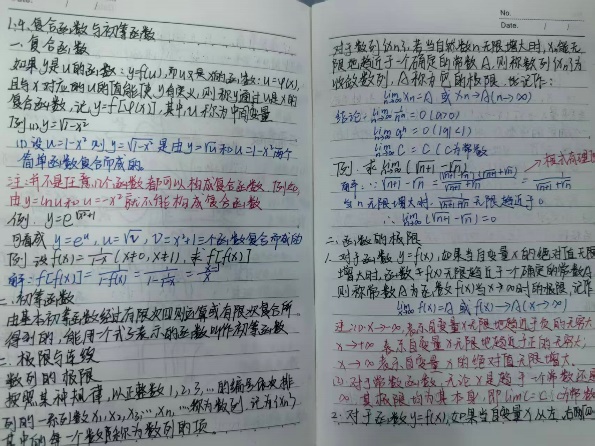 1.4. 复合函数与初等函数
一. 复合函数
如果y是u的函数: y=f(u), 而u又是x的函数: u=φ(x),
且与x对应的u的值能使y有定义, 则称y通过u是x的
复合函数, 记y=f[φ(x)], 其中u称为中间变量
例(1) y=√1-x²
(1) 设u=1-x² 则y=√1-x² 是由y=√u和u=1-x²两个
简单函数复合而成的.
注: 并不是任意几个函数都可以构成复合函数
由y=lnu和u=-x²就不能构成复合函数
例. y=e^√x²+1
可看成 y=e^u, u=√v, v=x²+1三个函数复合而成的
例 设f(x)=1/(1-x) (x≠0, x≠1), 求f[f(x)]
解: f[f(x)]=
二. 初等函数
由基本初等函数经过有限次四则运算或有限次复合所
得到的, 能用一个式子表示的函数叫作初等函数
极限与连续
数列的极限
按照某种规律, 以正整数1,2,3,...的编号依次排
列的一列数x₁,x₂,x₃,...,xₙ,...称为数列, 记为{xₙ}
其中的每一个数称为数列的项.
No.
Date. / /
对于数列{xₙ}, 若当自然数n无限增大时, xₙ能无
限地趋近于一个确定的常数A, 则称数列{xₙ}为
收敛数列, A称为的极限. 记作:
lim n→∞ xₙ=A 或 xₙ→A(n→∞)
结论: lim n→∞ =0
lim n→∞ qⁿ=0 (|q|<1)
lim n→∞ C=C (C为常数)
例. 求lim n→∞ (√n+1-√n)
解: ∵ √n+1-√n =
当n无限增大时, 无限趋近于0
∴ lim n→∞ (√n+1-√n)=0
二. 函数的极限
1. 对于函数y=f(x), 如果当自变量x的绝对值无限
增大时, 函数f(x)无限趋近于一个确定的常数A
则称常数A为函数f(x)当x→∞时的极限, 记作
lim x→∞ f(x)=A 或 f(x)→A(x→∞)
注: (1) x→-∞, 表示自变量x无限地趋近于负的无穷大
x→+∞ 表示自变量x无限地趋近于正的无穷大;
x→∞ 表示自变量x的绝对值无限增大.
(2) 对于常数函数, 无论x是趋于一个常数还是
∞, 其极限均为其本身, 即lim C=C
2. 对于函数y=f(x), 如果当自变量x从左、右两